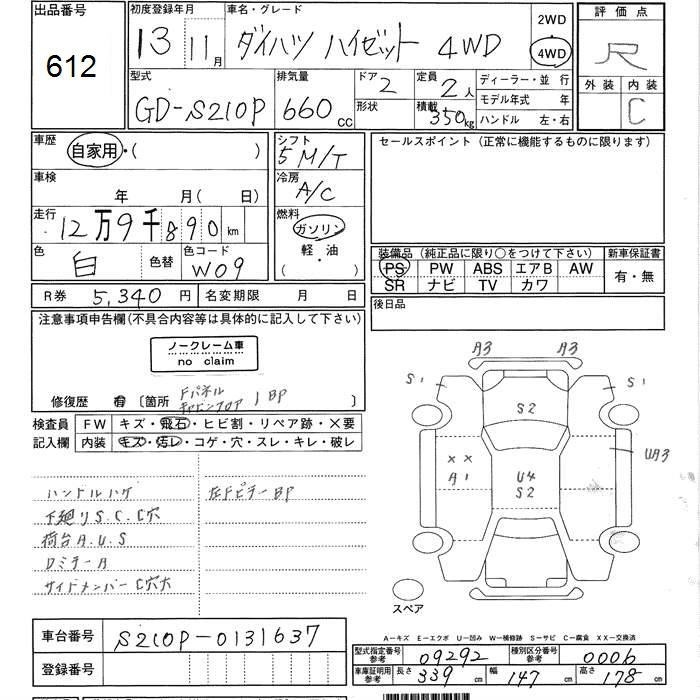 出品番号
612
初度登録年月
13 11月
車名・グレード
ダイハツ ハイゼット 4WD
2WD
・
4WD
評価点
R
型式
GD-S210P
排気量
660 CC
ドア
2
形状
定員
2人
積載
350kg
ディーラー・並 行
モデル年式 年
ハンドル 左・右
外装
内装
C
車歴
自家用・( )
車検
年 月( 日)
走行
12万9千890km
色
白
色替
色コード
W09
シフト
5M/T
冷房
A/C
燃料
ガソリン
軽・油
( )
セールスポイント(正常に機能するものに限ります)
装備品(純正品に限り○をつけて下さい)
PS PW ABS エアB AW
SR ナビ TV カワ
新車保証書
有・無
R券 5,340円
名変期限 月 日
後日品
注意事項申告欄(不具合内容等は具体的に記入して下さい)
ノークレーム車
no claim
修復歴 有 〔箇所 Fパネル
BP 〕
検査員
記入欄
FW キズ・飛石・ヒビ割・リペア跡・×要
内装 キズ・汚レ・コゲ・穴・スレ・キレ・破レ
ハンドルハゲ
下廻りS.C.C穴
荷台A.U.S
DミラーA
サイドメンバーC穴大
左FピラーBP
A3
A3
S1
S1
S2
××
A1
U4
S2
UA3
スペア
A−キズ E−エクボ U−凹み W−補修跡 S−サビ C−腐食 XX−交換済
車台番号
S210P-0131637
登録番号
型式指定番号
参考
09292
種別区分番号
参考
0006
車庫証明用
参考
長さ 339 cm
幅 147 cm
高さ 178 cm